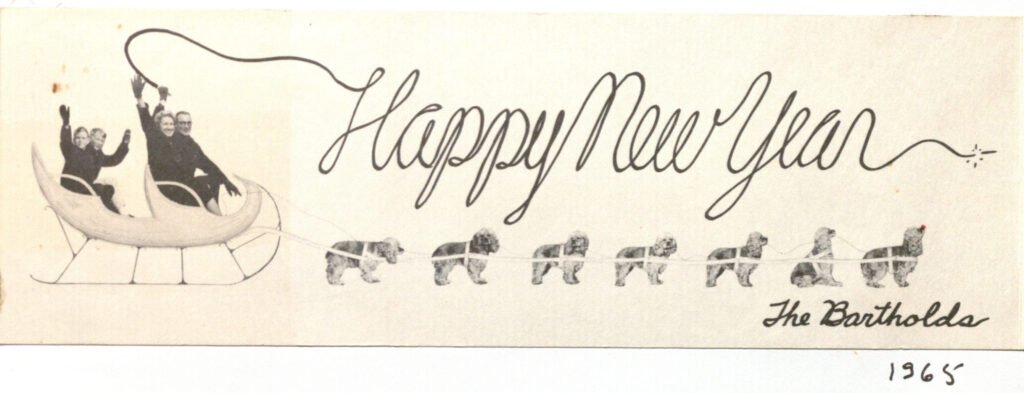 Happy New Year
The Bartholds
1965